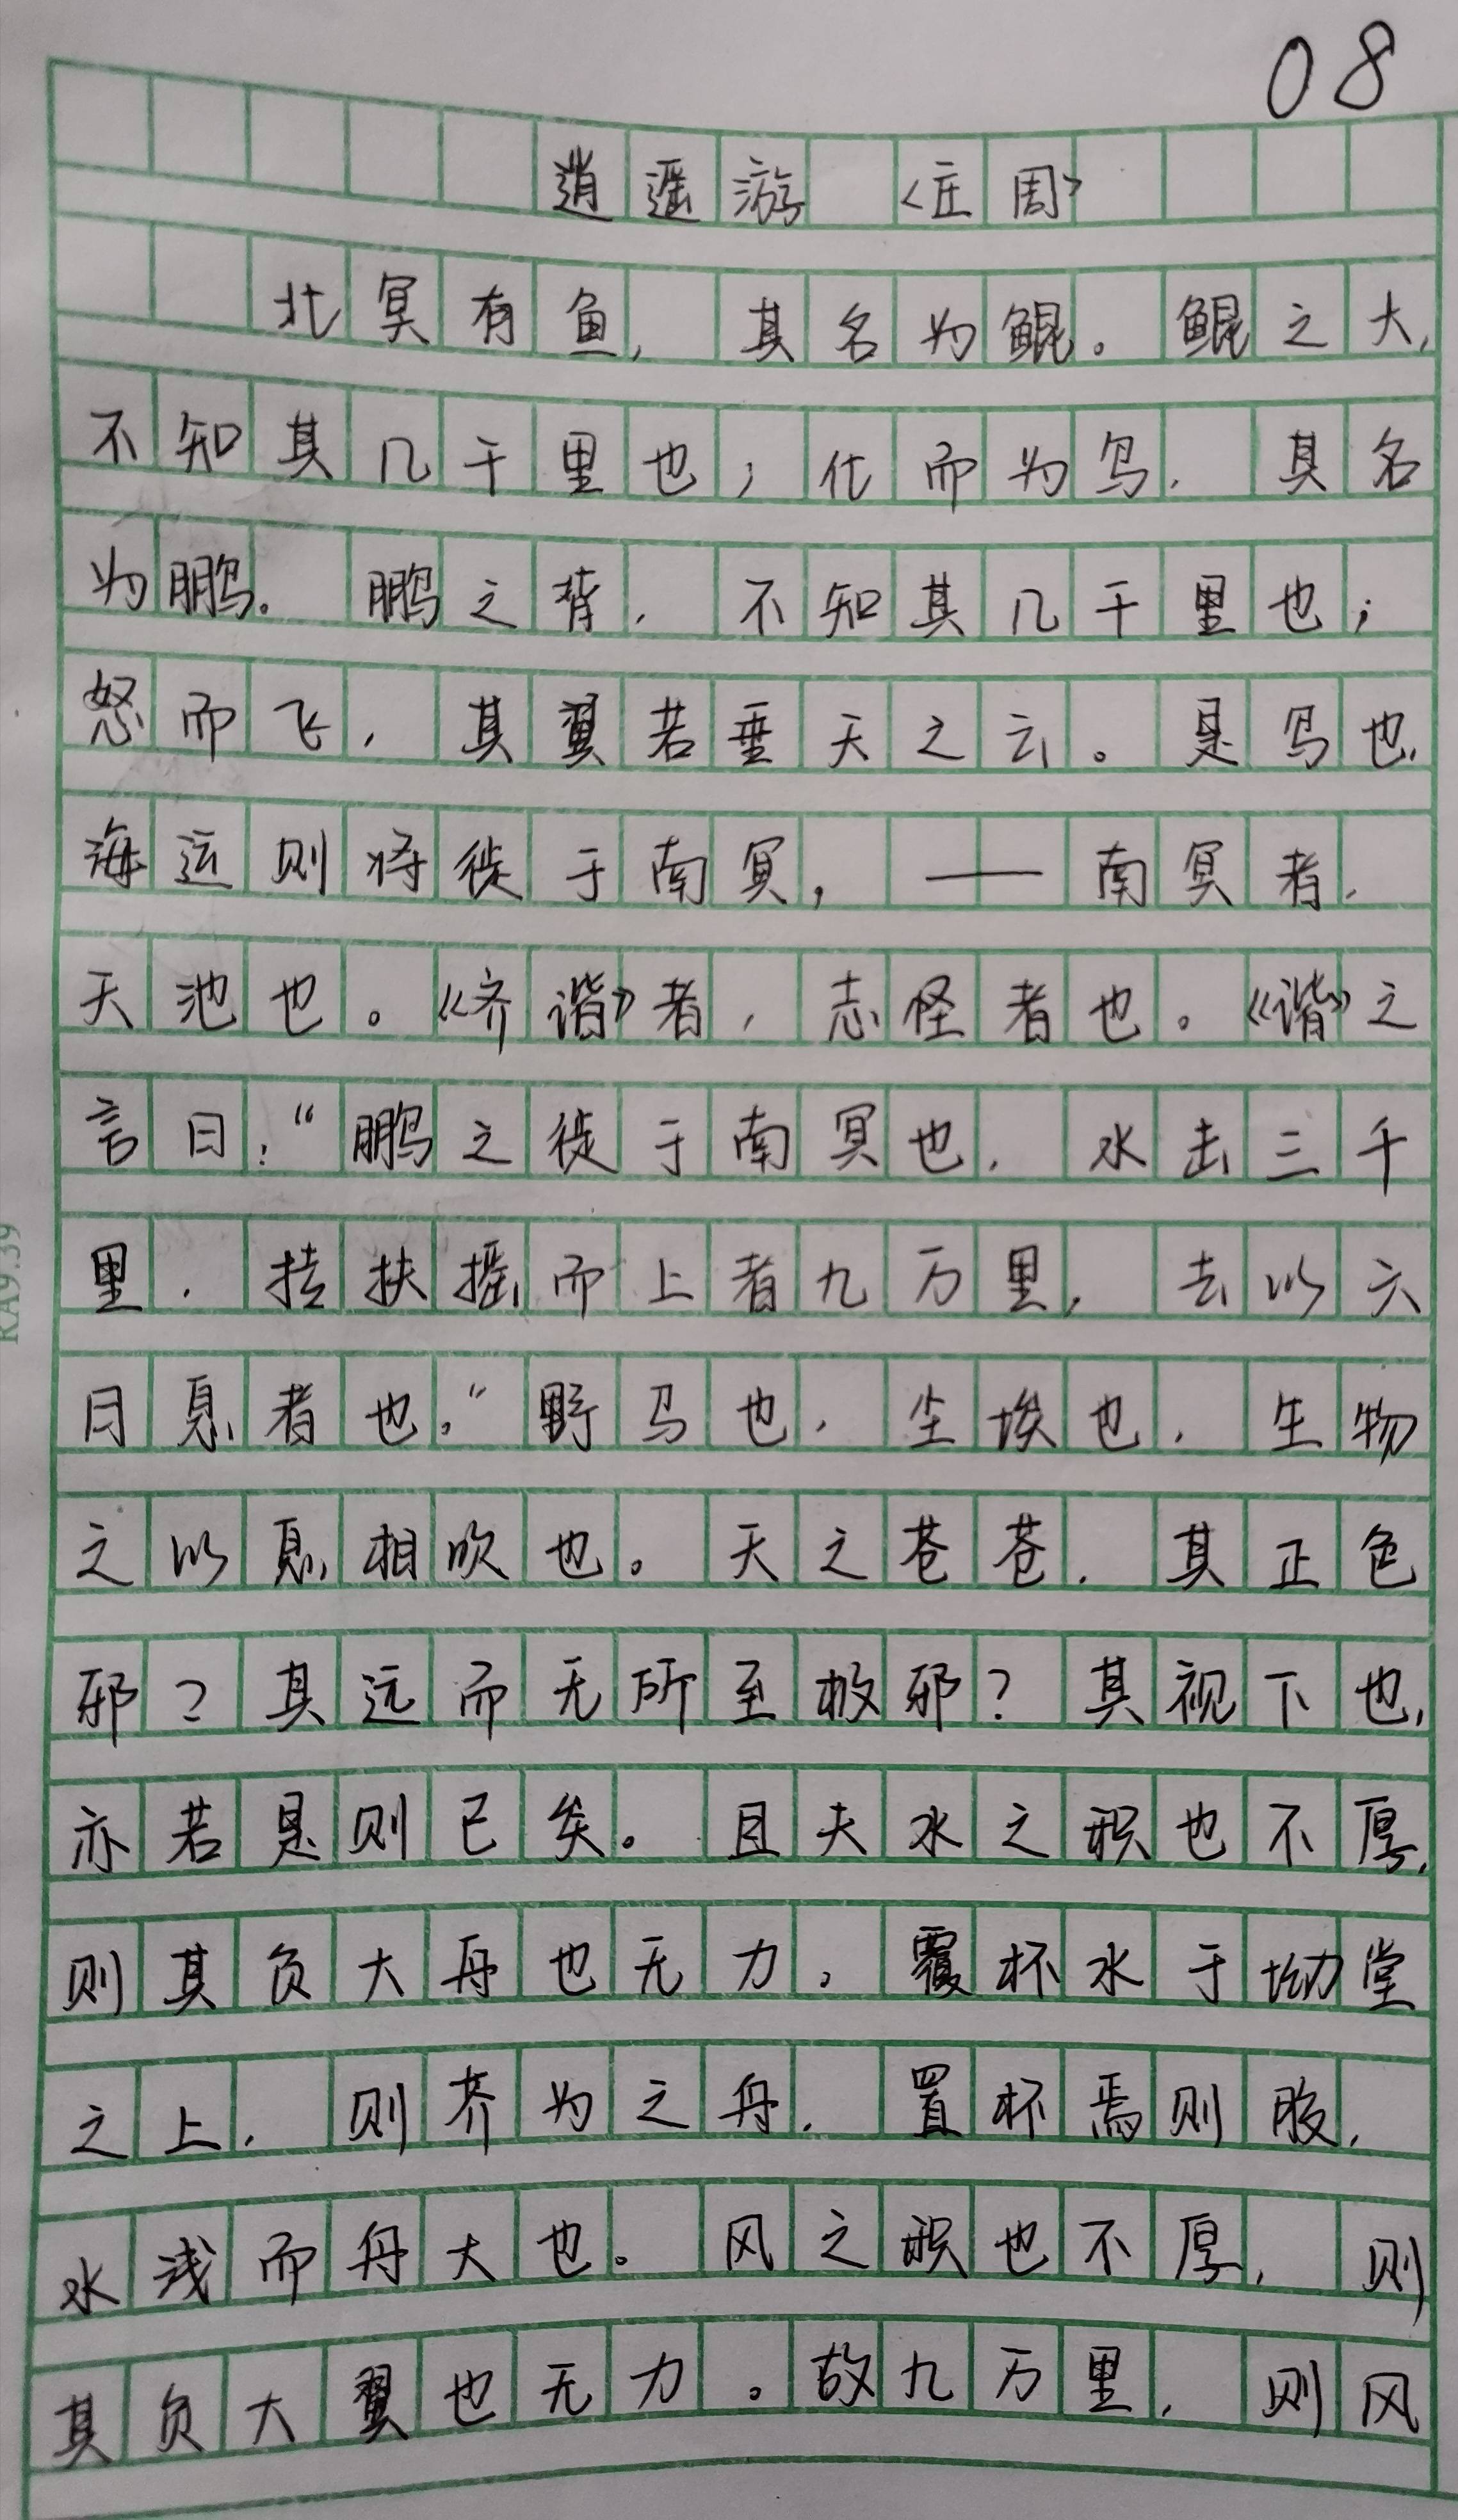 08
逍遥游 <庄周>
北冥有鱼,其名为鲲。鲲之大,
不知其几千里也;化而为鸟,其名
为鹏。鹏之背,不知其几千里也;
怒而飞,其翼若垂天之云。是鸟也,
海运则将徙于南冥,——南冥者,
天池也。《齐谐》者,志怪者也。《谐》之
言曰:“鹏之徙于南冥也,水击三千
里,抟扶摇而上者九万里,去以六
月息者也。”野马也,尘埃也,生物
之以息相吹也。天之苍苍,其正色
邪?其远而无所至极邪?其视下也,
亦若是则已矣。且夫水之积也不厚,
则其负大舟也无力。覆杯水于坳堂
之上,则芥为之舟,置杯焉则胶,
水浅而舟大也。风之积也不厚,则
其负大翼也无力。故九万里,则风
RA9.39